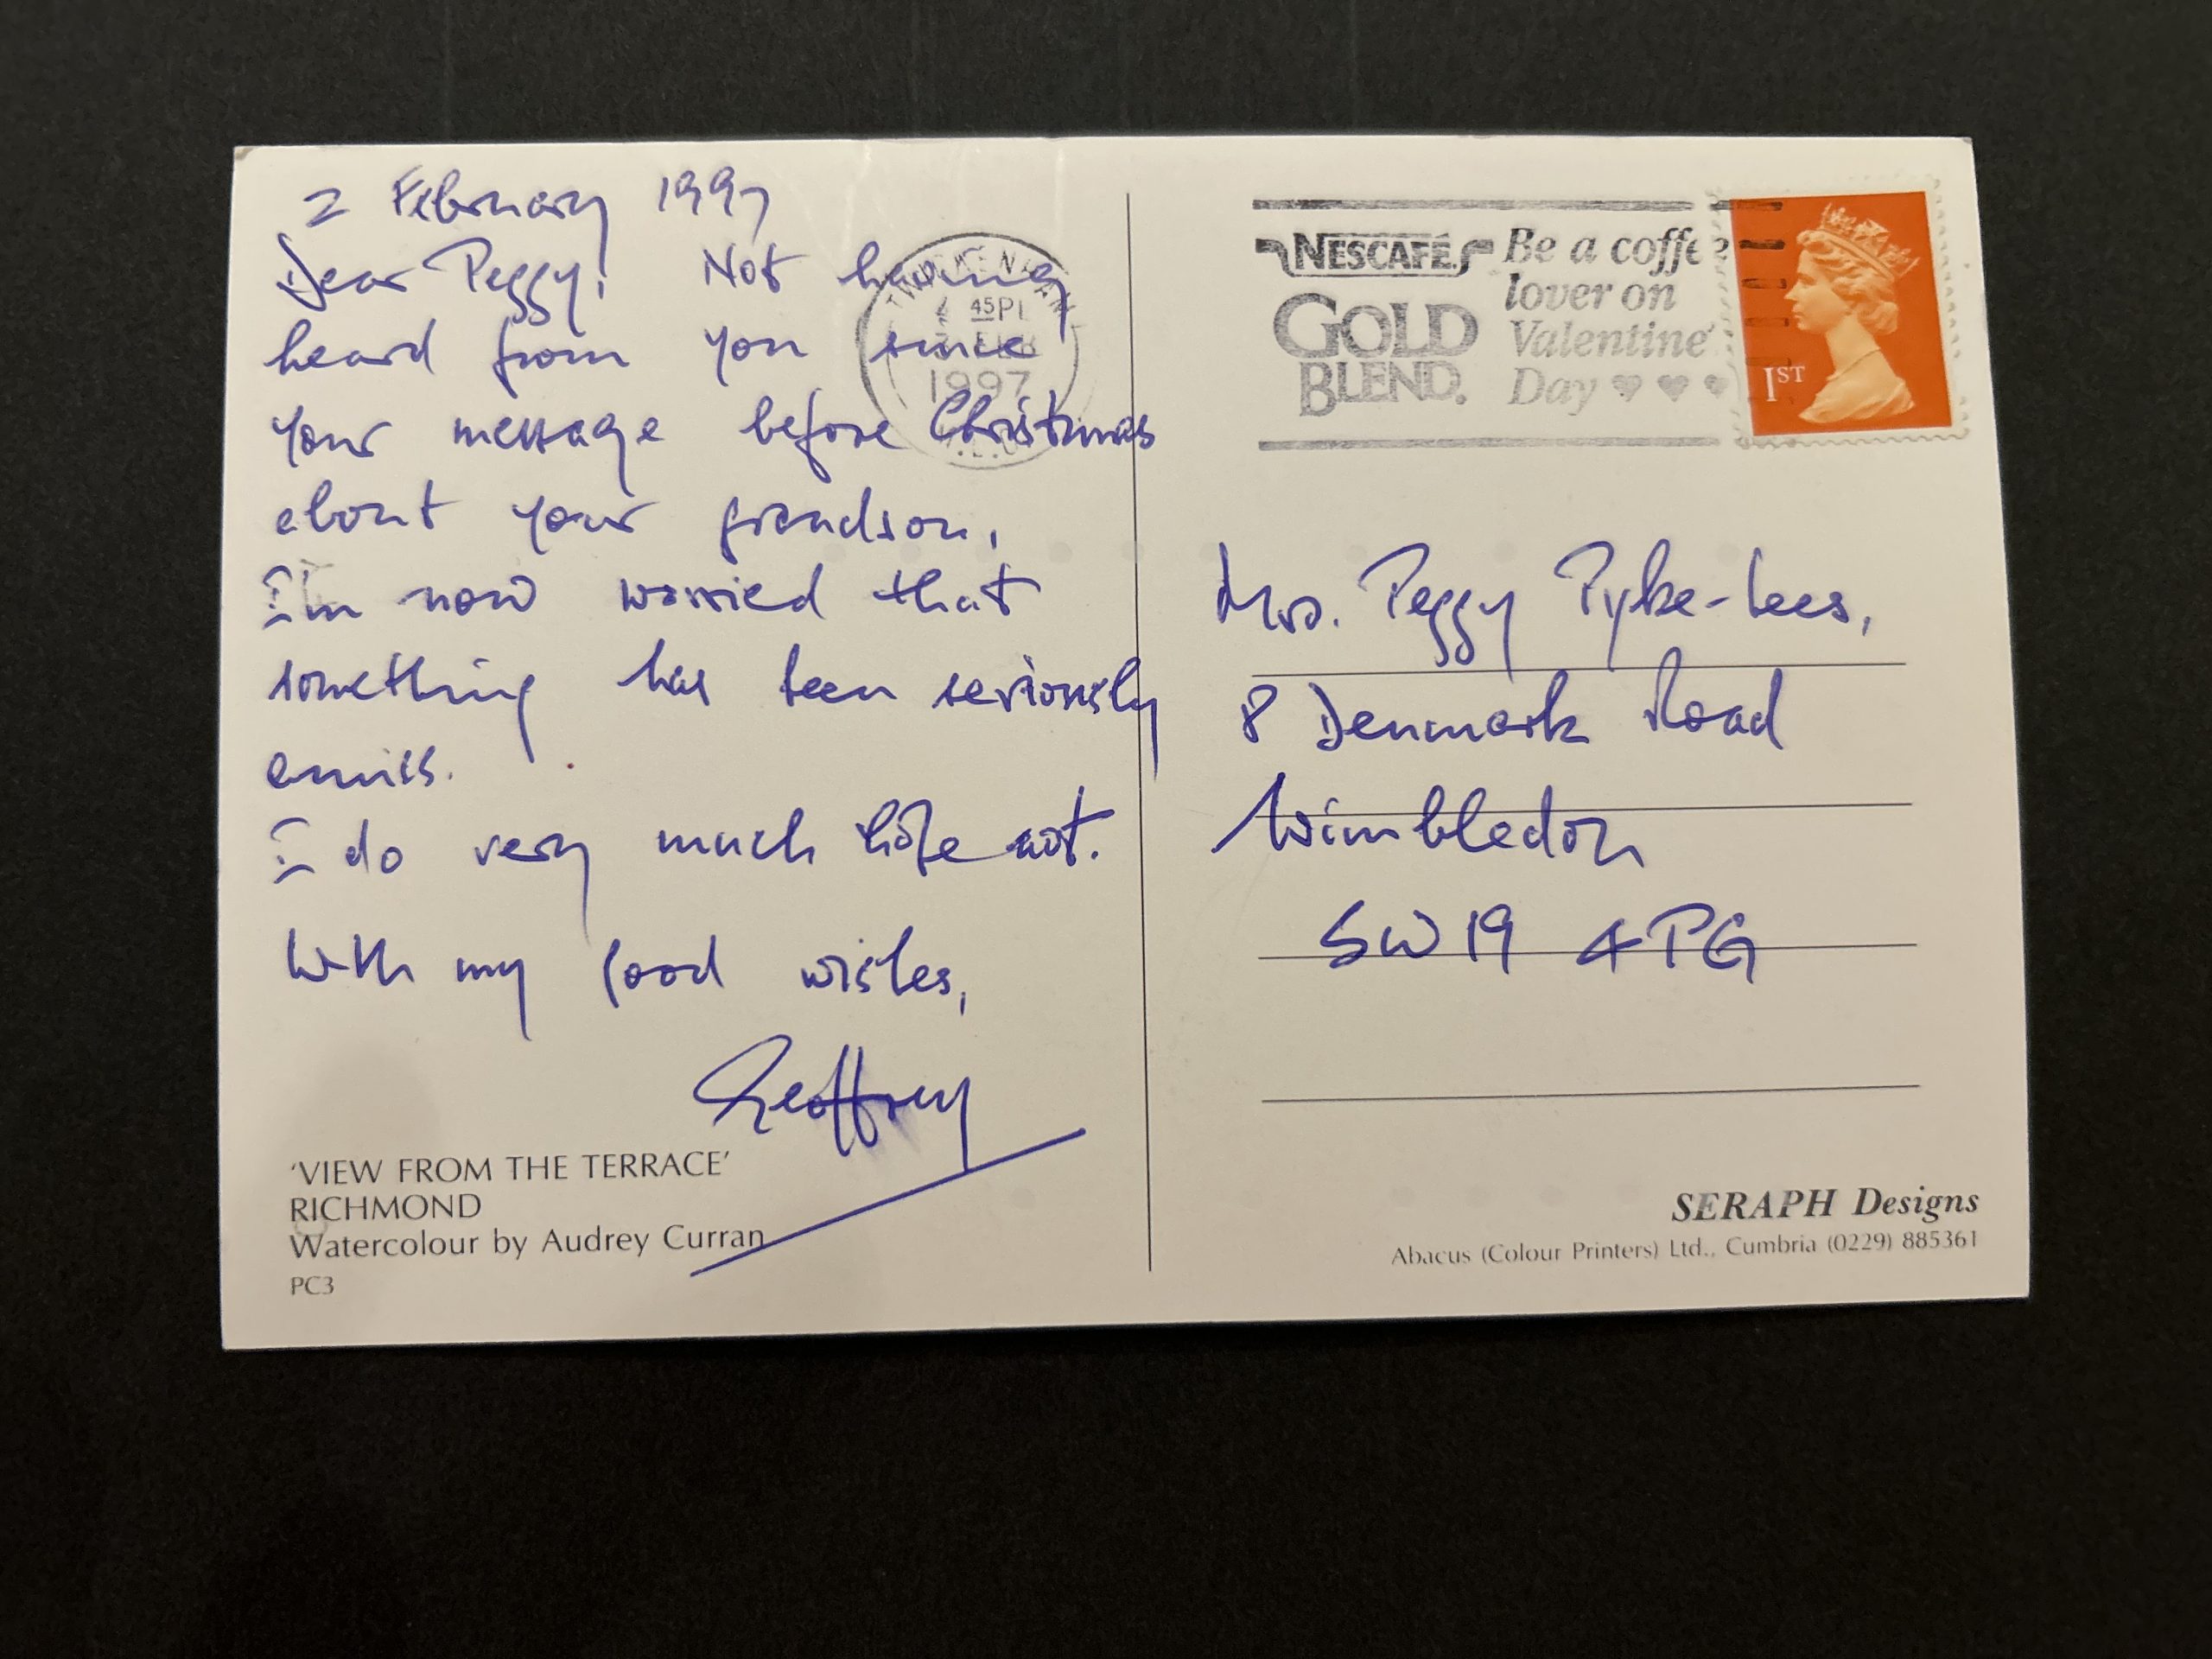 2 February 1997
Dear Peggy, Not having
heard from you since
your message before Christmas
about your grandson,
I'm now worried that
something has been seriously
amiss.
I do very much hope not.
With my good wishes,
Geoffrey
'VIEW FROM THE TERRACE'
RICHMOND
Watercolour by Audrey Curran
PC3
45P
1997
NESCAFÉ
GOLD
BLEND.
Be a coffee
lover on
Valentine'
Day
1ST
Mrs. Peggy Pyke-Lees,
8 Denmark Road
Wimbledon
SW19 4PG
SERAPH Designs
Abacus (Colour Printers) Ltd., Cumbria (0229) 885361